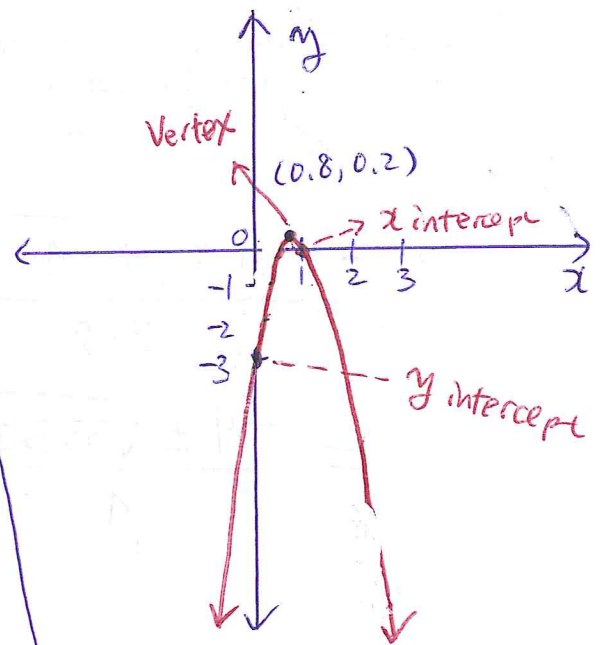 y
Vertex
(0.8, 0.2)
x intercept
0
1 2 3
x
-1
-2
-3
y intercept